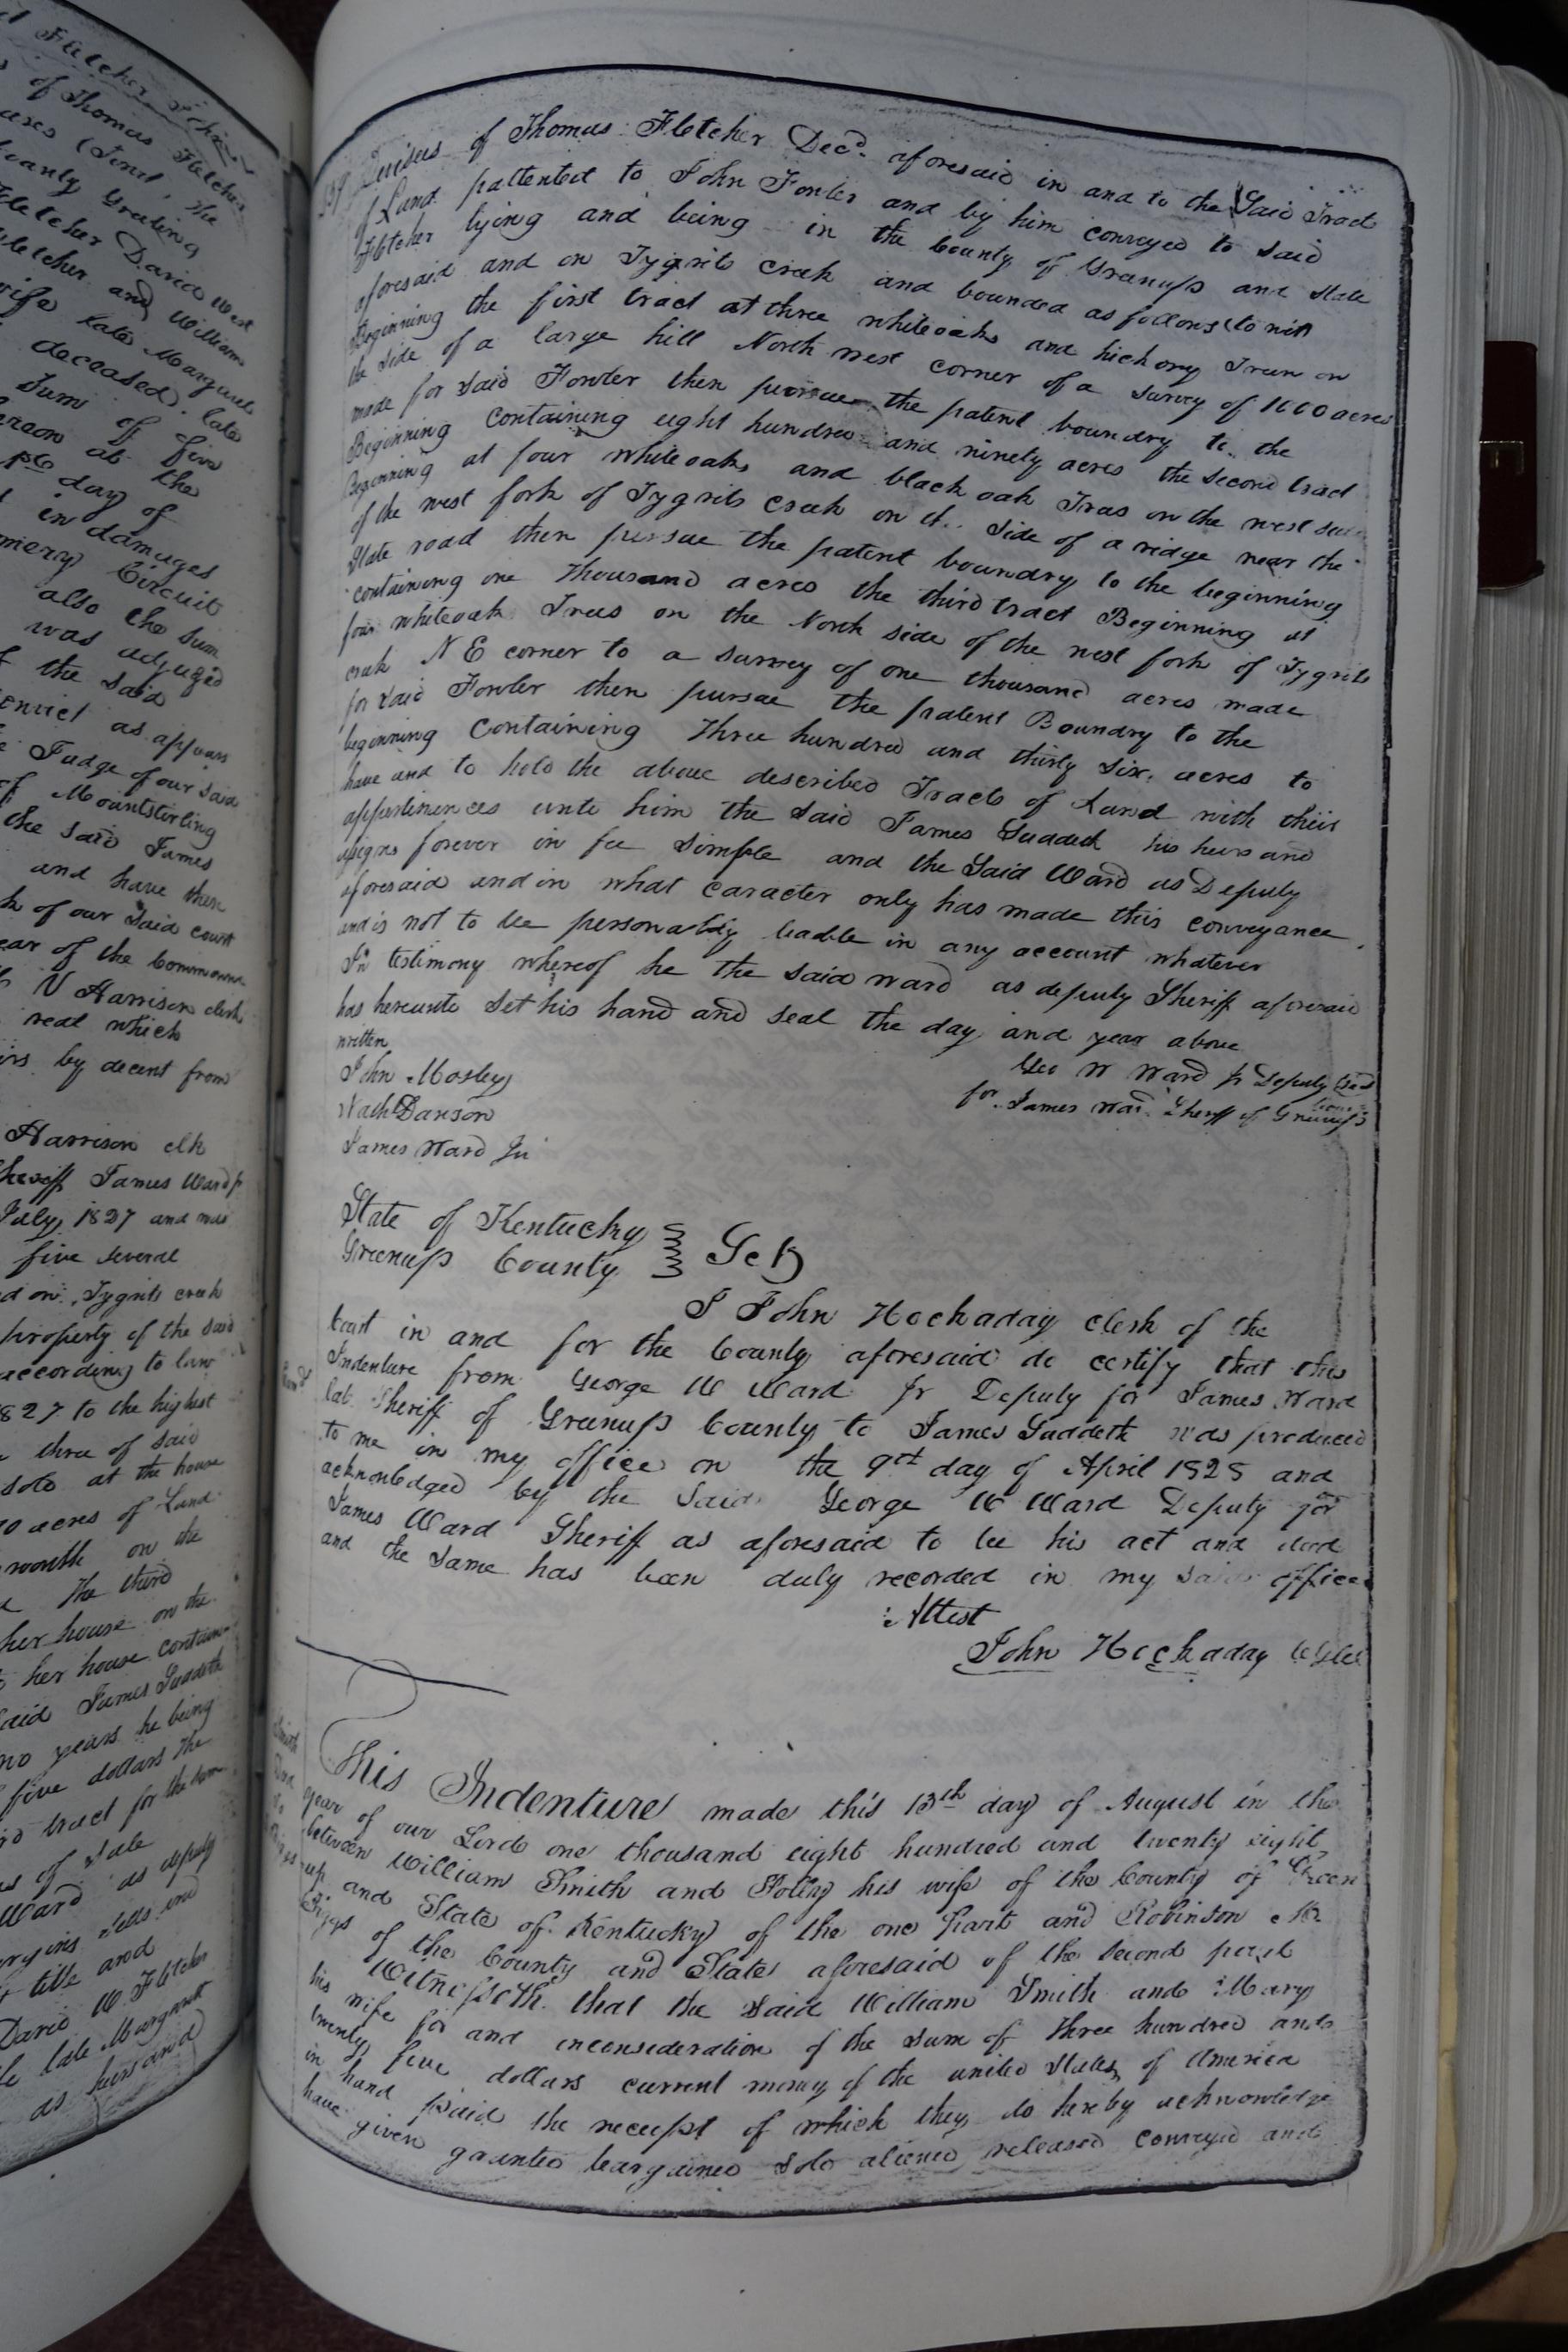 Fletcher
of Thomas Fletcher
the
County
Fletcher David West
Fletcher and William
wife late Margaret
deceased late
Sum of five
at the
day of
in damages
Circuit
also the sum
was adjuged
the said
as appears
Judge of our said
of Mountsterling
the said James
and have then
of our said court
year of the Commonw
N Harrison clerk
real which
by decent from
Harrison clk
Sheriff James Ward
July 1827 and was
five several
on Tygrits creek
property of the said
according to law
1827 to the highest
three of said
sold at the house
acres of Land
month on the
the third
her house on the
her house contain
said James Suddeth
two years he being
five dollars the
tract for the sum
of sale
Ward as deputy
sells and
title and
David W Fletcher
late Margaret
as husband
Devisees of Thomas Fletcher Decd. aforesaid in and to the Said Tract
of Land pattented to John Fowler and by him conveyed to said
Fletcher lying and being in the County of Greenup and State
aforesaid and on Tygrits creek and bounded as follows (to wit)
Beginning the first tract at three whiteoaks and hickory Trees on
the side of a large hill North west corner of a survey of 1000 acres
made for said Fowler then pursue the patent boundry to the
Beginning containing eight hundred and ninety acres the second tract
Beginning at four whiteoaks and black oak Trees on the west side
of the west fork of Tygrits Creek on the side of a ridge near the
State road then pursue the patent boundry to the beginning
containing one thousand acres the third tract Beginning at
four whiteoak Trees on the North side of the west fork of Tygrits
creek N E corner to a survey of one thousand acres made
for said Fowler then pursue the patent Boundry to the
beginning containing Three hundred and thirty six acres to
have and to hold the above described Tracts of Land with their
appertinences unto him the said James Suddeth his heirs and
assigns forever in fee simple and the Said Ward as Deputy
aforesaid and in what caracter only has made this conveyance
and is not to be personably leable in any account whatever
In testimony whereof he the said ward as deputy Sheriff aforesaid
has hereunto set his hand and seal the day and year above
written
Geo W Ward jr Deputy
for James Ward Sheriff of Greenup
John Mosley
Nathl Dawson
James Ward Jr
State of Kentucky
Greenup County Sct
I John Hockaday clerk of the
Court in and for the County aforesaid do certify that this
Indenture from George W Ward Jr Deputy for James Ward
late Sheriff of Greenup County to James Suddeth was produced
to me in my office on the 9th day of April 1828 and
acknowledged by the Said George W Ward Deputy for
James Ward Sheriff as aforesaid to be his act and deed
and the same has been duly recorded in my said office
Attest
John Hockaday
Smith
Deed
to
This Indenture made this 13th day of August in the
year of our Lord one thousand eight hundred and twenty eight
between William Smith and Polly his wife of the County of Green
up and State of Kentucky of the one part and Robinson M
Biggs of the County and State aforesaid of the second part
Witnesseth that the said William Smith and Mary
his wife for and inconsideration of the sum of three hundred and
twenty five dollars current money of the united States of America
in hand paid the receipt of which they do hereby acknowledge
have given granted bargained sold aliened released conveyed and